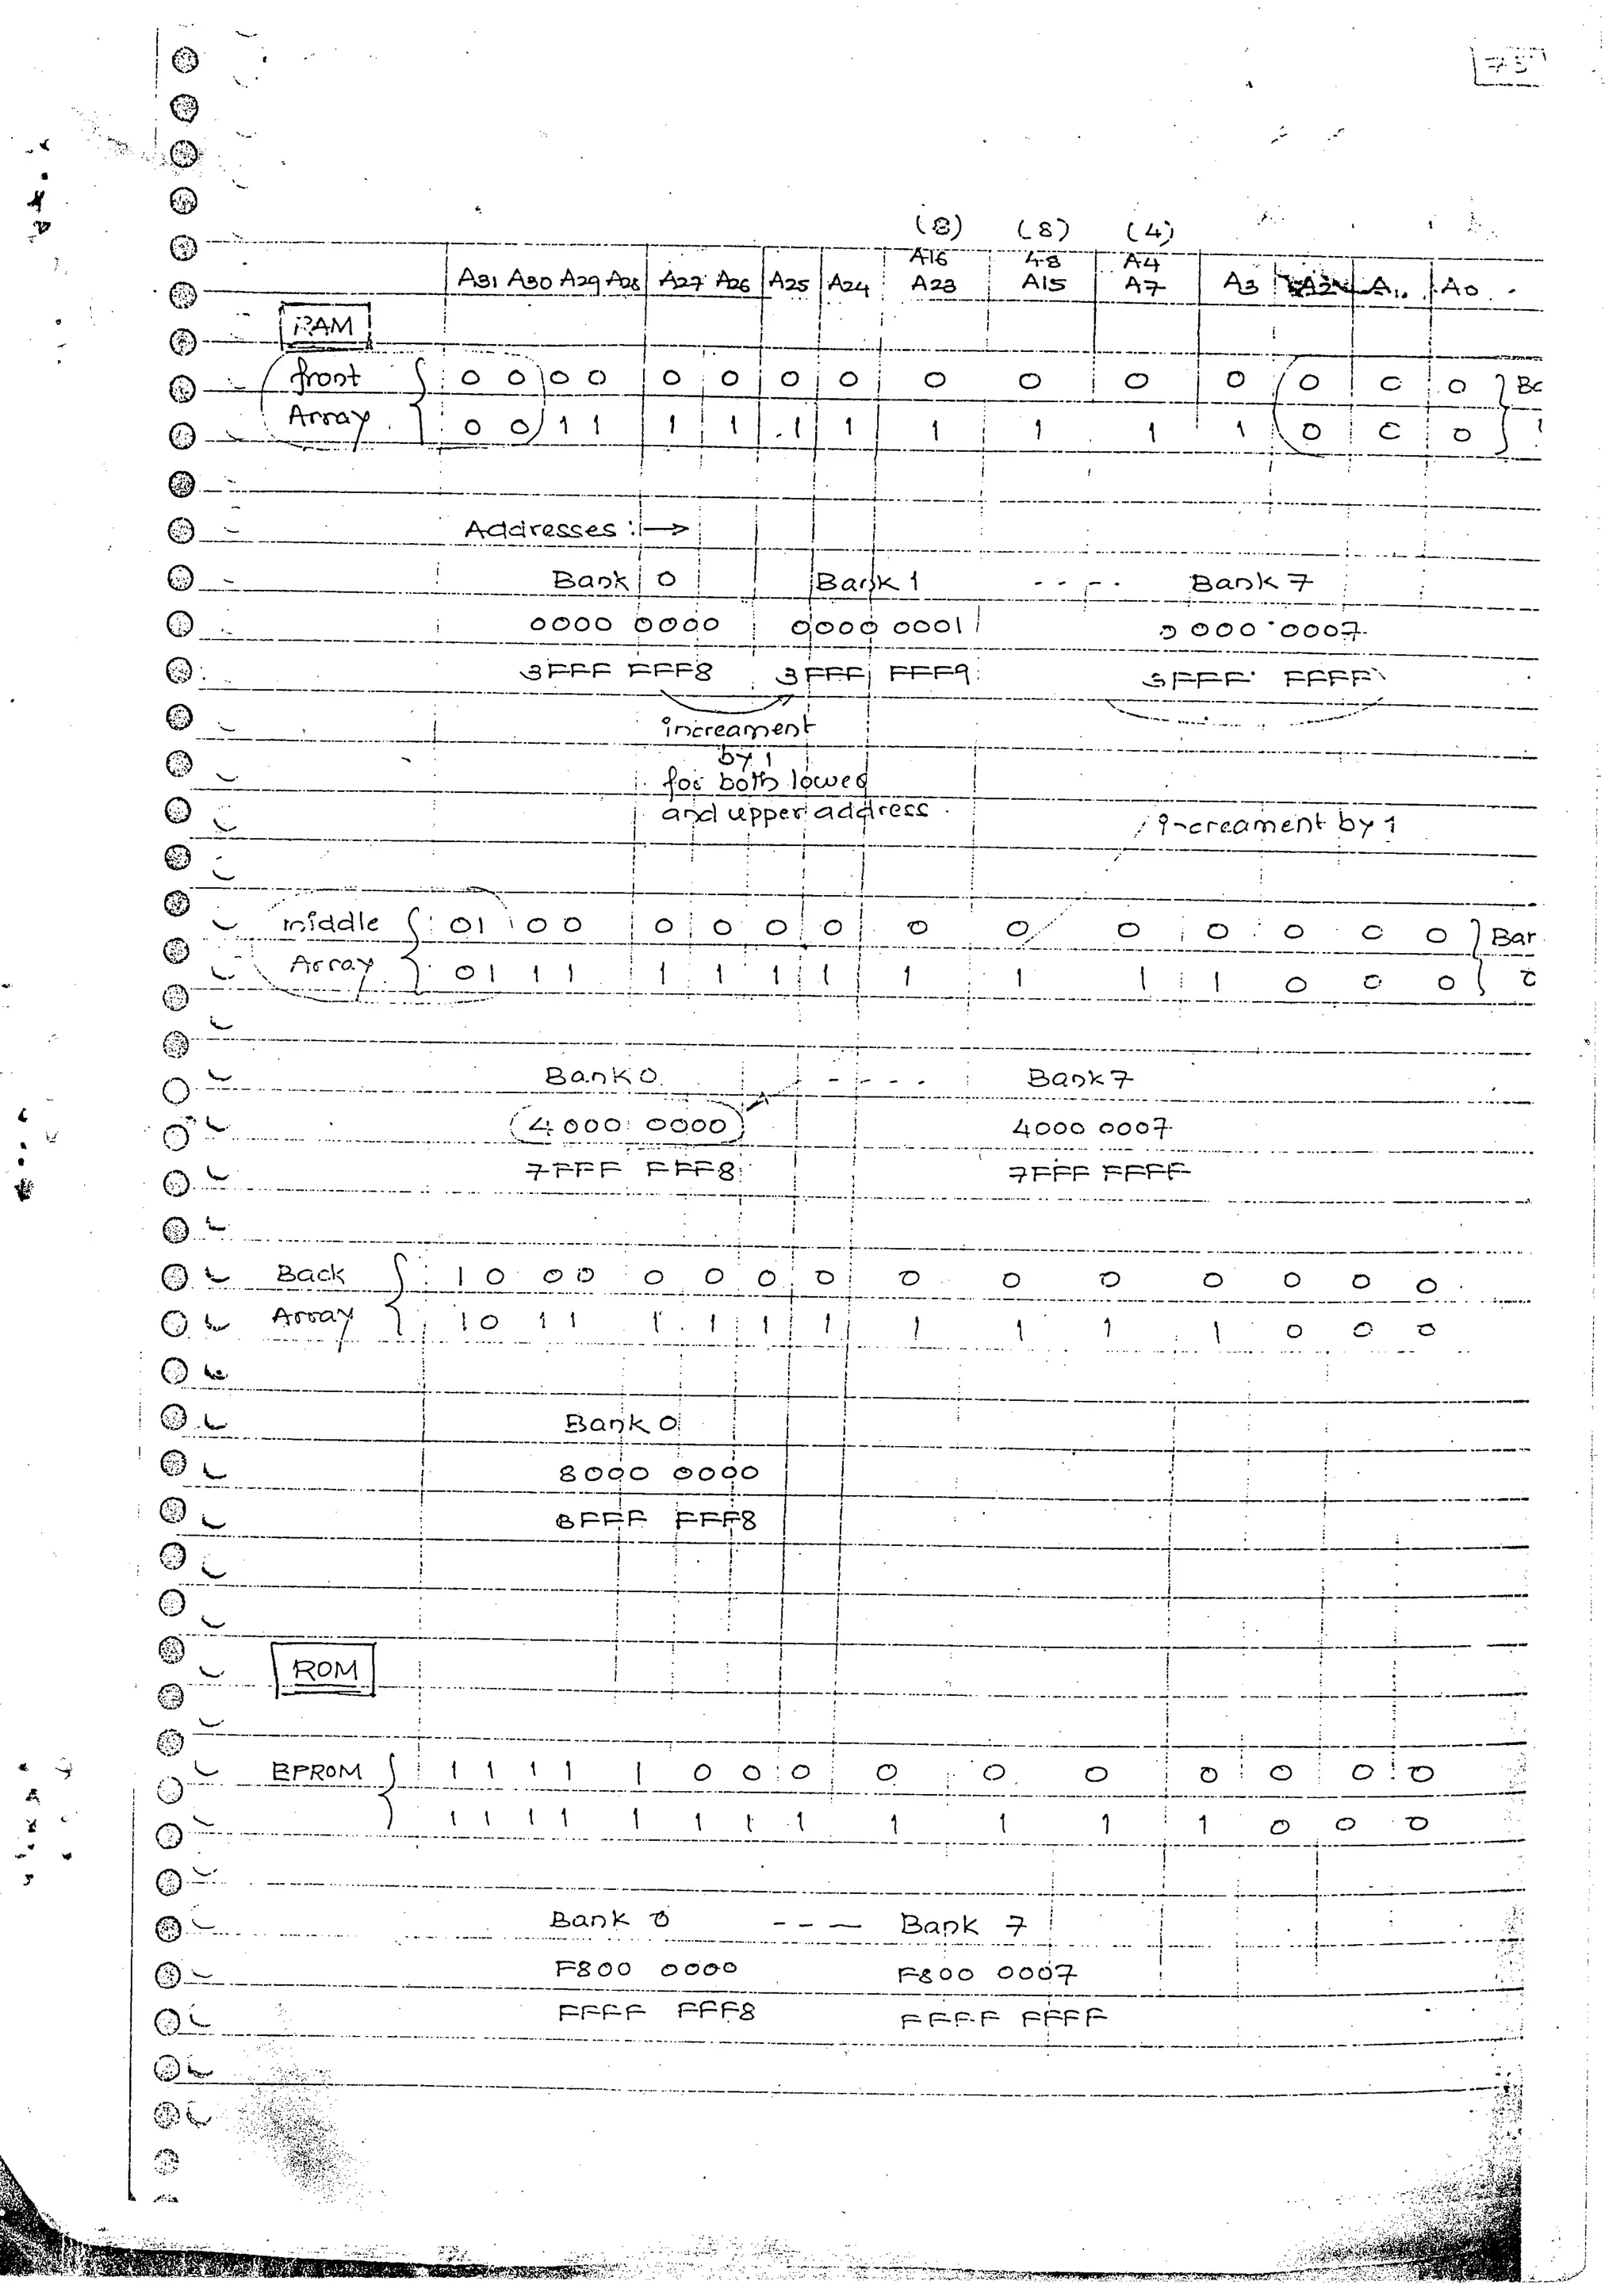 75
(8) (8) (4)
A16 A8 A4
A31 A30 A29 A28 A27 A26 A25 A24 A23 A15 A7 A3 A2 A1 A0
RAM
front 0 0 0 0 0 0 0 0 0 0 0 0 0 0 0
Array 0 0 1 1 1 1 1 1 1 1 1 1 0 0 0
Addresses :→
Bank 0 Bank 1 ---- Bank 7
0000 0000 0000 0001 0000 0007
3FFF FFF8 3FFF FFF9 3FFF FFFF
increament
by 1
for both lower
and upper address
increament by 1
middle 01 0 0 0 0 0 0 0 0 0 0 0 0 0
Array 01 1 1 1 1 1 1 1 1 1 1 0 0 0
Bank 0 ---- Bank 7
4000 0000 4000 0007
7FFF FFF8 7FFF FFFF
Back 1 0 0 0 0 0 0 0 0 0 0 0 0 0 0
Array 1 0 1 1 1 1 1 1 1 1 1 1 0 0 0
Bank 0
8000 0000
BFFF FFF8
ROM
EPROM 1 1 1 1 1 0 0 0 0 0 0 0 0 0 0
1 1 1 1 1 1 1 1 1 1 1 1 0 0 0
Bank 0 --- Bank 7
F800 0000 F800 0007
FFFF FFF8 FFFF FFFF